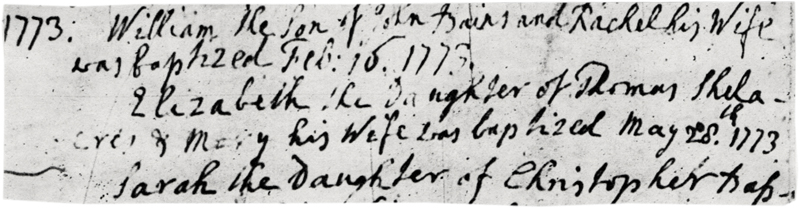 1773. William the Son of John Bains and Rachel his Wife
was baptized Feb: 16. 1773.
Elizabeth the Daughter of Thomas Shela-
& Mary his Wife was baptized May 28.th 1773
Sarah the Daughter of Christopher